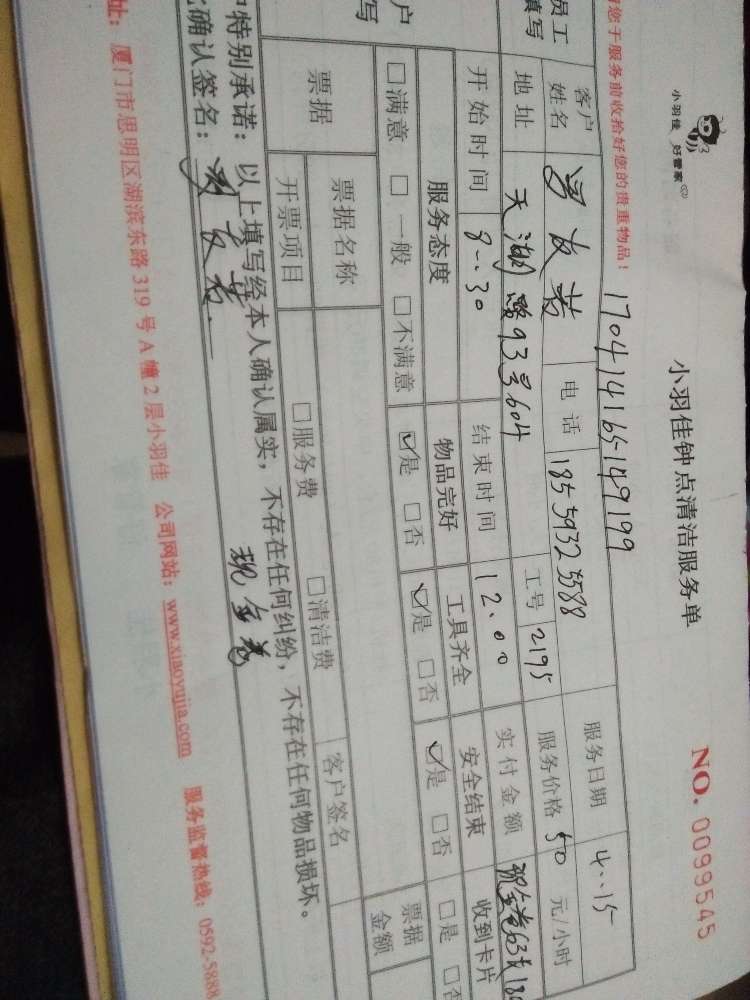 小羽佳 好管家
小羽佳钟点清洁服务单
NO. 0099545
您于服务前收拾好您的贵重物品!
170414165149199
员工
填写
客户
姓名
电话
18559325588
服务日期
4..15
地址
天湖路93号604
工号
2195
服务价格
50
元/小时
开始时间
8..30
结束时间
12.00
实付金额
服务态度
物品完好
工具齐全
安全结束
收到卡片
□满意 □一般 □不满意
☑是 □否
☑是 □否
☑是 □否
□是 □否
票据
票据名称
□服务费 □清洁费
票据
金额
开票项目
客户签名
特别承诺:以上填写经本人确认属实,不存在任何纠纷,不存在任何物品损坏。
确认签名:
址:厦门市思明区湖滨东路319号A幢2层小羽佳 公司网站:www.xiaoyujia.com 服务监督热线:0592-5888